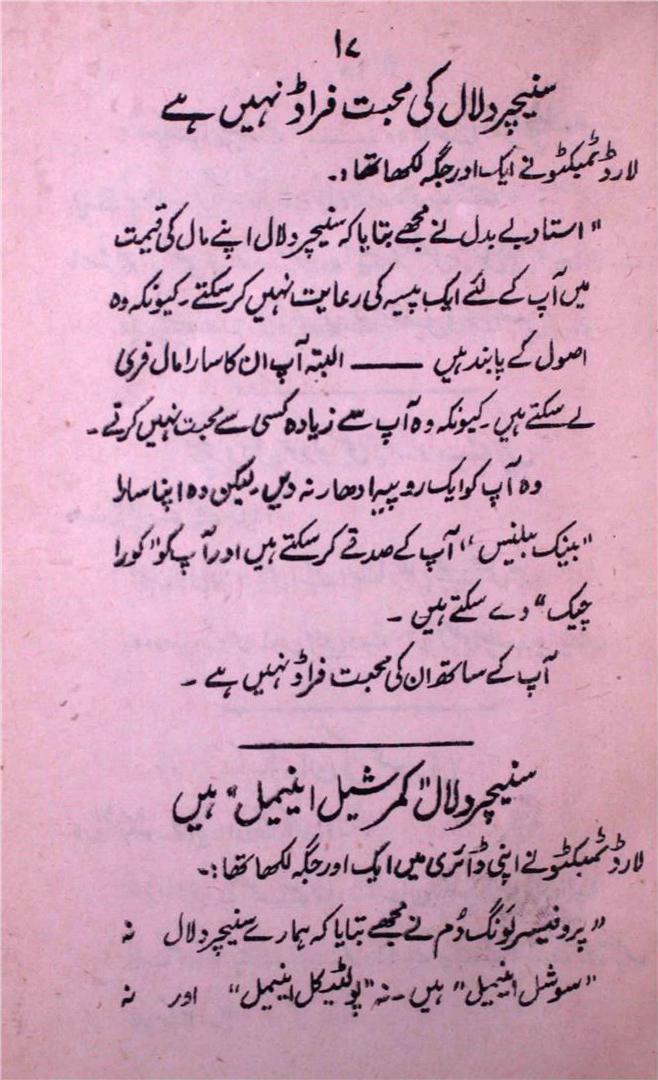 ۱۷
سنیچر دلال کی محبت فراڈ نہیں ہے
لارڈ ٹمبکٹو نے ایک اور جگہ لکھا تھا :۔
"استاد بے بدل نے مجھے بتایا کہ سنیچر دلال اپنے مال کی قیمت
میں آپ کے لئے ایک پیسہ کی رعایت نہیں کر سکتے۔ کیونکہ وہ
اصول کے پابند ہیں —— البتہ آپ ان کا سارا مال فری
لے سکتے ہیں۔ کیونکہ وہ آپ سے زیادہ کسی سے محبت نہیں کرتے۔
وہ آپ کو ایک روپیہ ادھار نہ دیں۔ لیکن وہ اپنا سارا
"بینک بیلنس" آپ کے صدقے کر سکتے ہیں اور آپ کو "کورا
چیک" دے سکتے ہیں ۔
آپ کے ساتھ ان کی محبت فراڈ نہیں ہے ۔
سنیچر دلال "کمرشیل اینیمل" ہیں
لارڈ ٹمبکٹو نے اپنی ڈائری میں ایک اور جگہ لکھا تھا :۔
"پروفیسر لَونگ دُم نے مجھے بتایا کہ ہمارے سنیچر دلال نہ
"سوشل اینیمل" ہیں ۔ نہ "پولیٹیکل اینیمل" اور نہ